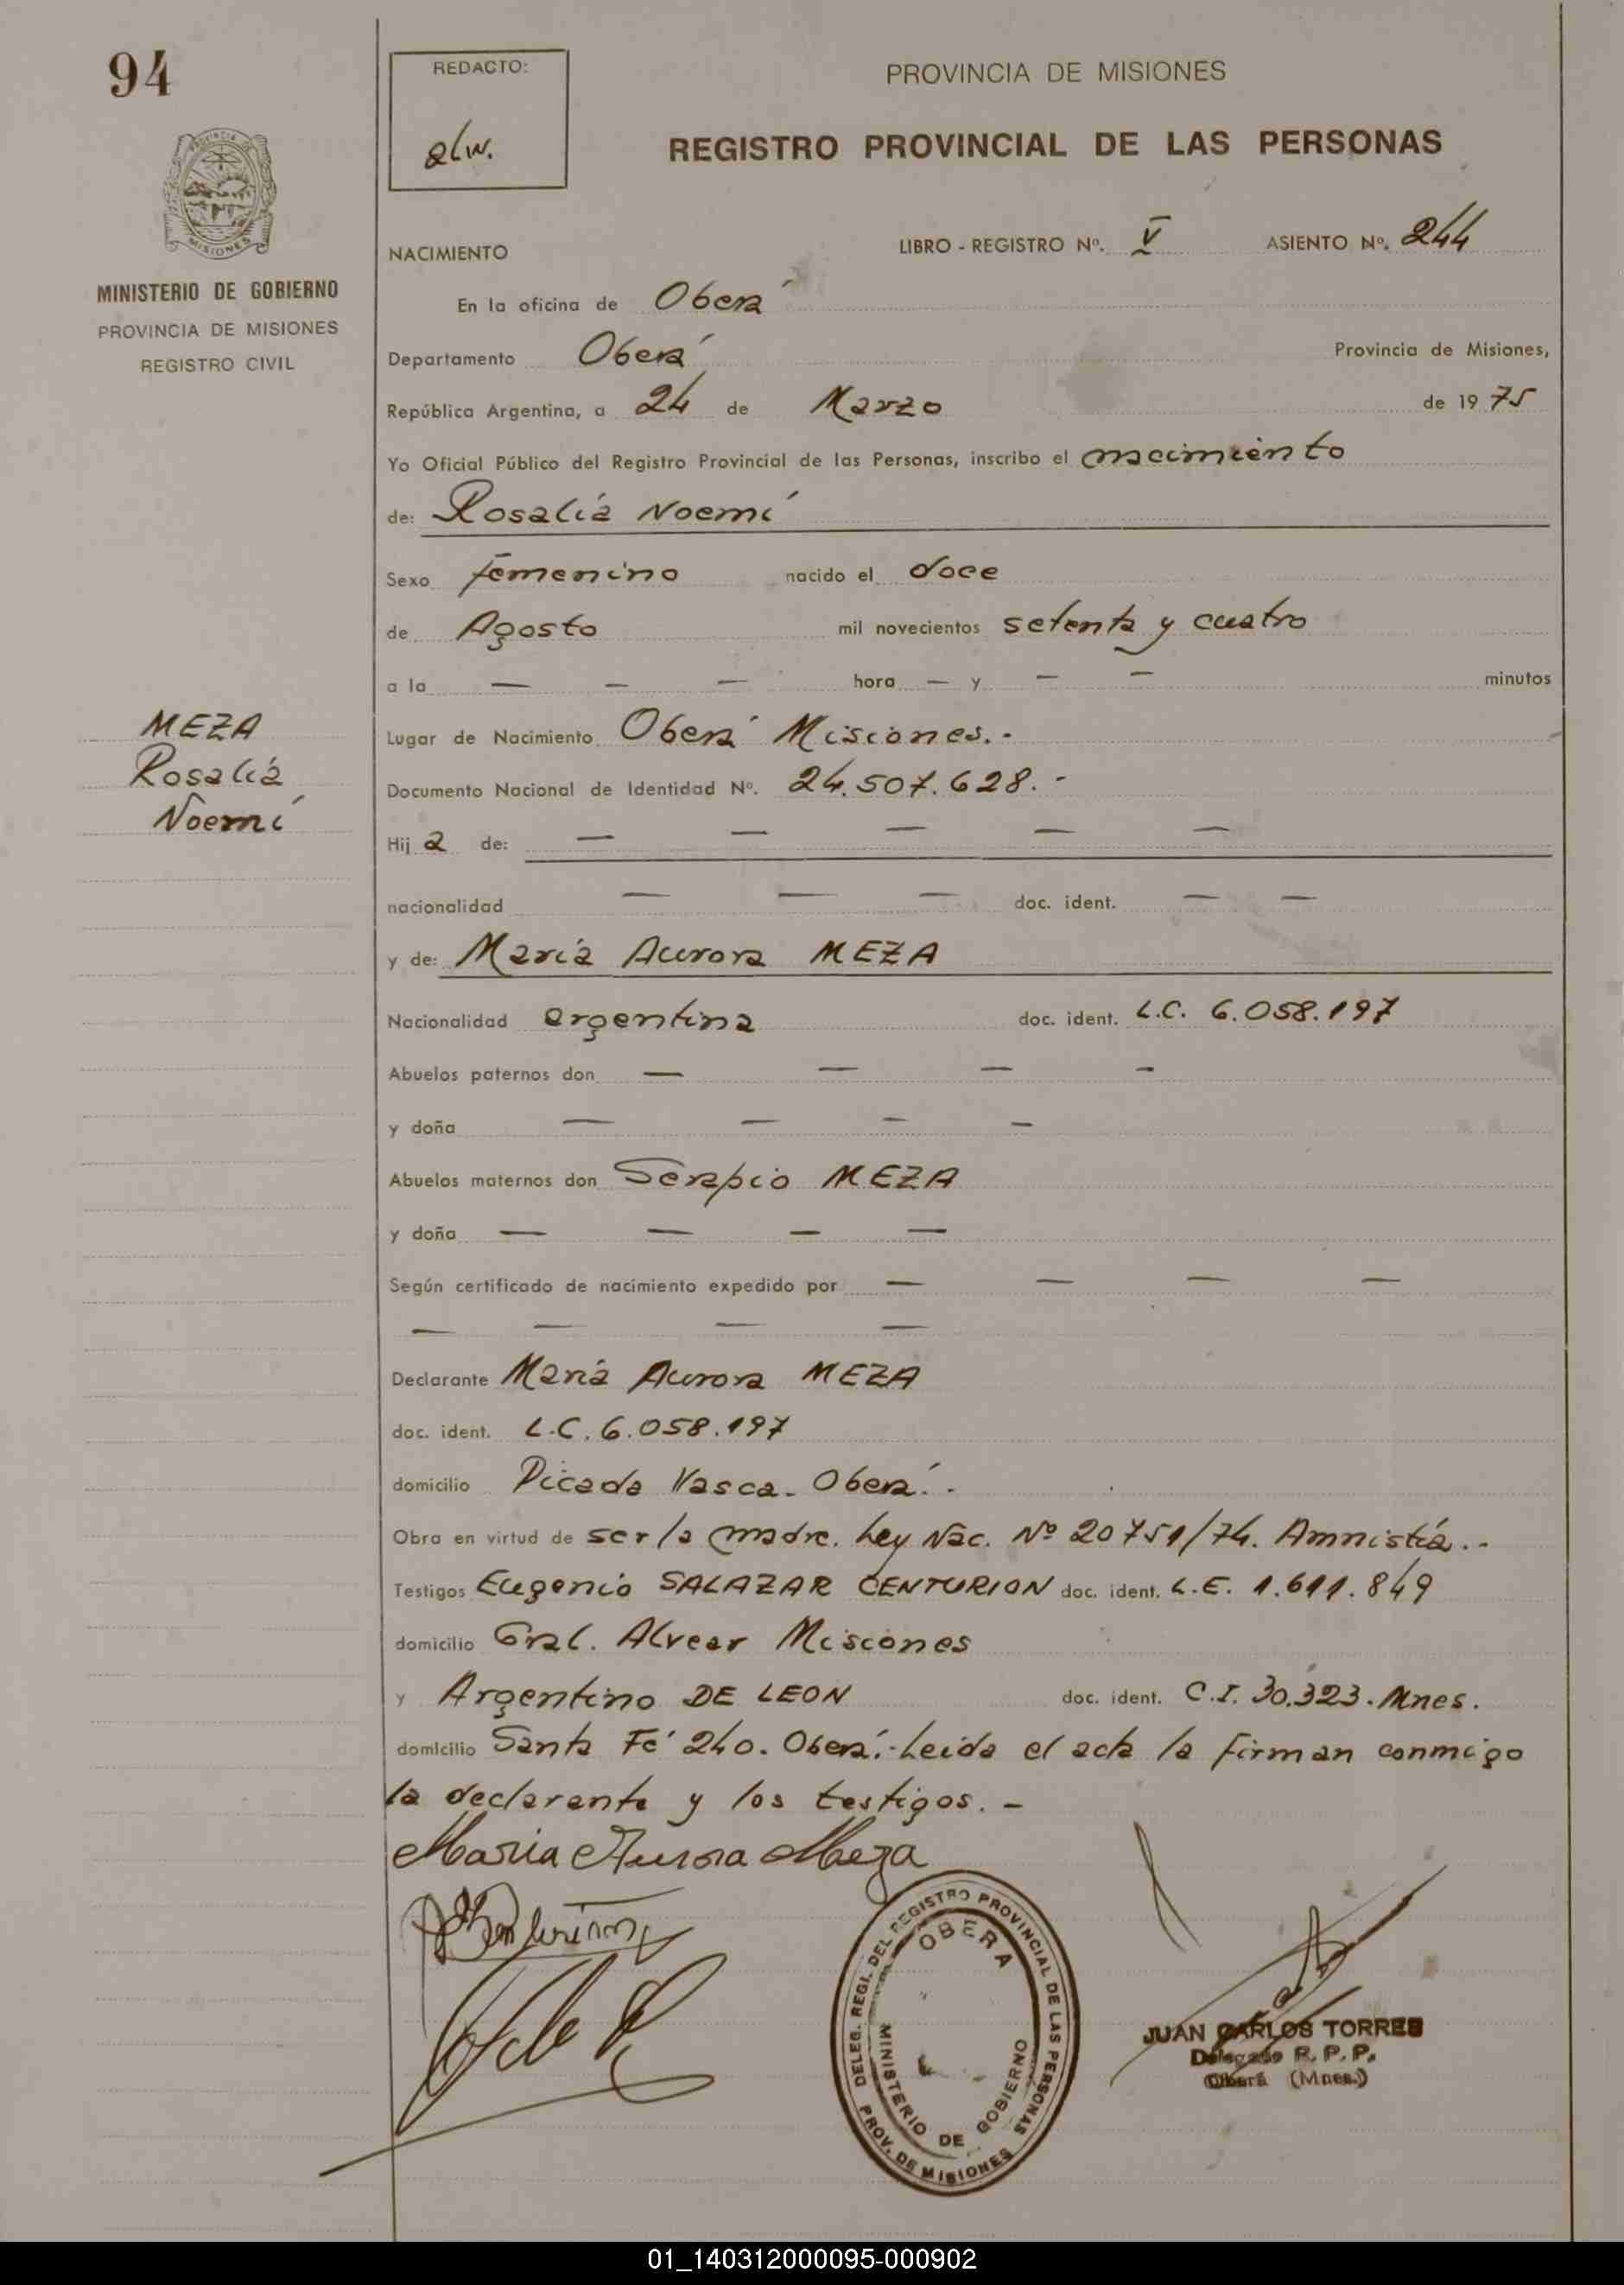 94
REDACTO:
PROVINCIA DE MISIONES
REGISTRO PROVINCIAL DE LAS PERSONAS
MISIONES
MINISTERIO DE GOBIERNO
PROVINCIA DE MISIONES
REGISTRO CIVIL
NACIMIENTO LIBRO - REGISTRO Nº. V ASIENTO Nº. 244
En la oficina de Oberá
Departamento Oberá Provincia de Misiones,
República Argentina, a 24 de Marzo de 1975
Yo Oficial Público del Registro Provincial de las Personas, inscribo el nacimiento
de: Rosalía Noemí
Sexo femenino nacido el doce
de Agosto mil novecientos setenta y cuatro
a la — — — hora — y — — minutos
MEZA
Rosalía
Noemí
Lugar de Nacimiento Oberá Misiones.-
Documento Nacional de Identidad Nº. 24.507.628.-
Hij a de: — — — — —
nacionalidad — — — doc. ident. — —
y de: María Aurora MEZA
Nacionalidad argentina doc. ident. L.C. 6.058.197
Abuelos paternos don — — — -
y doña — — - -
Abuelos maternos don Serapio MEZA
y doña — — — —
Según certificado de nacimiento expedido por — — — —
— — — —
Declarante María Aurora MEZA
doc. ident. L.C. 6.058.197
domicilio Picada Vasca - Oberá.-
Obra en virtud de ser la madre. Ley Nac. Nº 20751/74. Amnistía.-
Testigos Eugenio SALAZAR CENTURION doc. ident. L.E. 1.611.849
domicilio Gral. Alvear Misiones
y Argentino DE LEON doc. ident. C.I. 30.323. Mnes.
domicilio Santa Fé 240. Oberá.- Leída el acta la firman conmigo
la declarante y los testigos. -
Maria Aurora Meza
DELEG. REGI. DEL REGISTRO PROVINCIAL DE LAS PERSONAS
OBERA
MINISTERIO DE GOBIERNO
PROV. DE MISIONES
JUAN CARLOS TORRES
Delegado R. P. P.
Oberá (Mnes.)
01_140312000095-000902